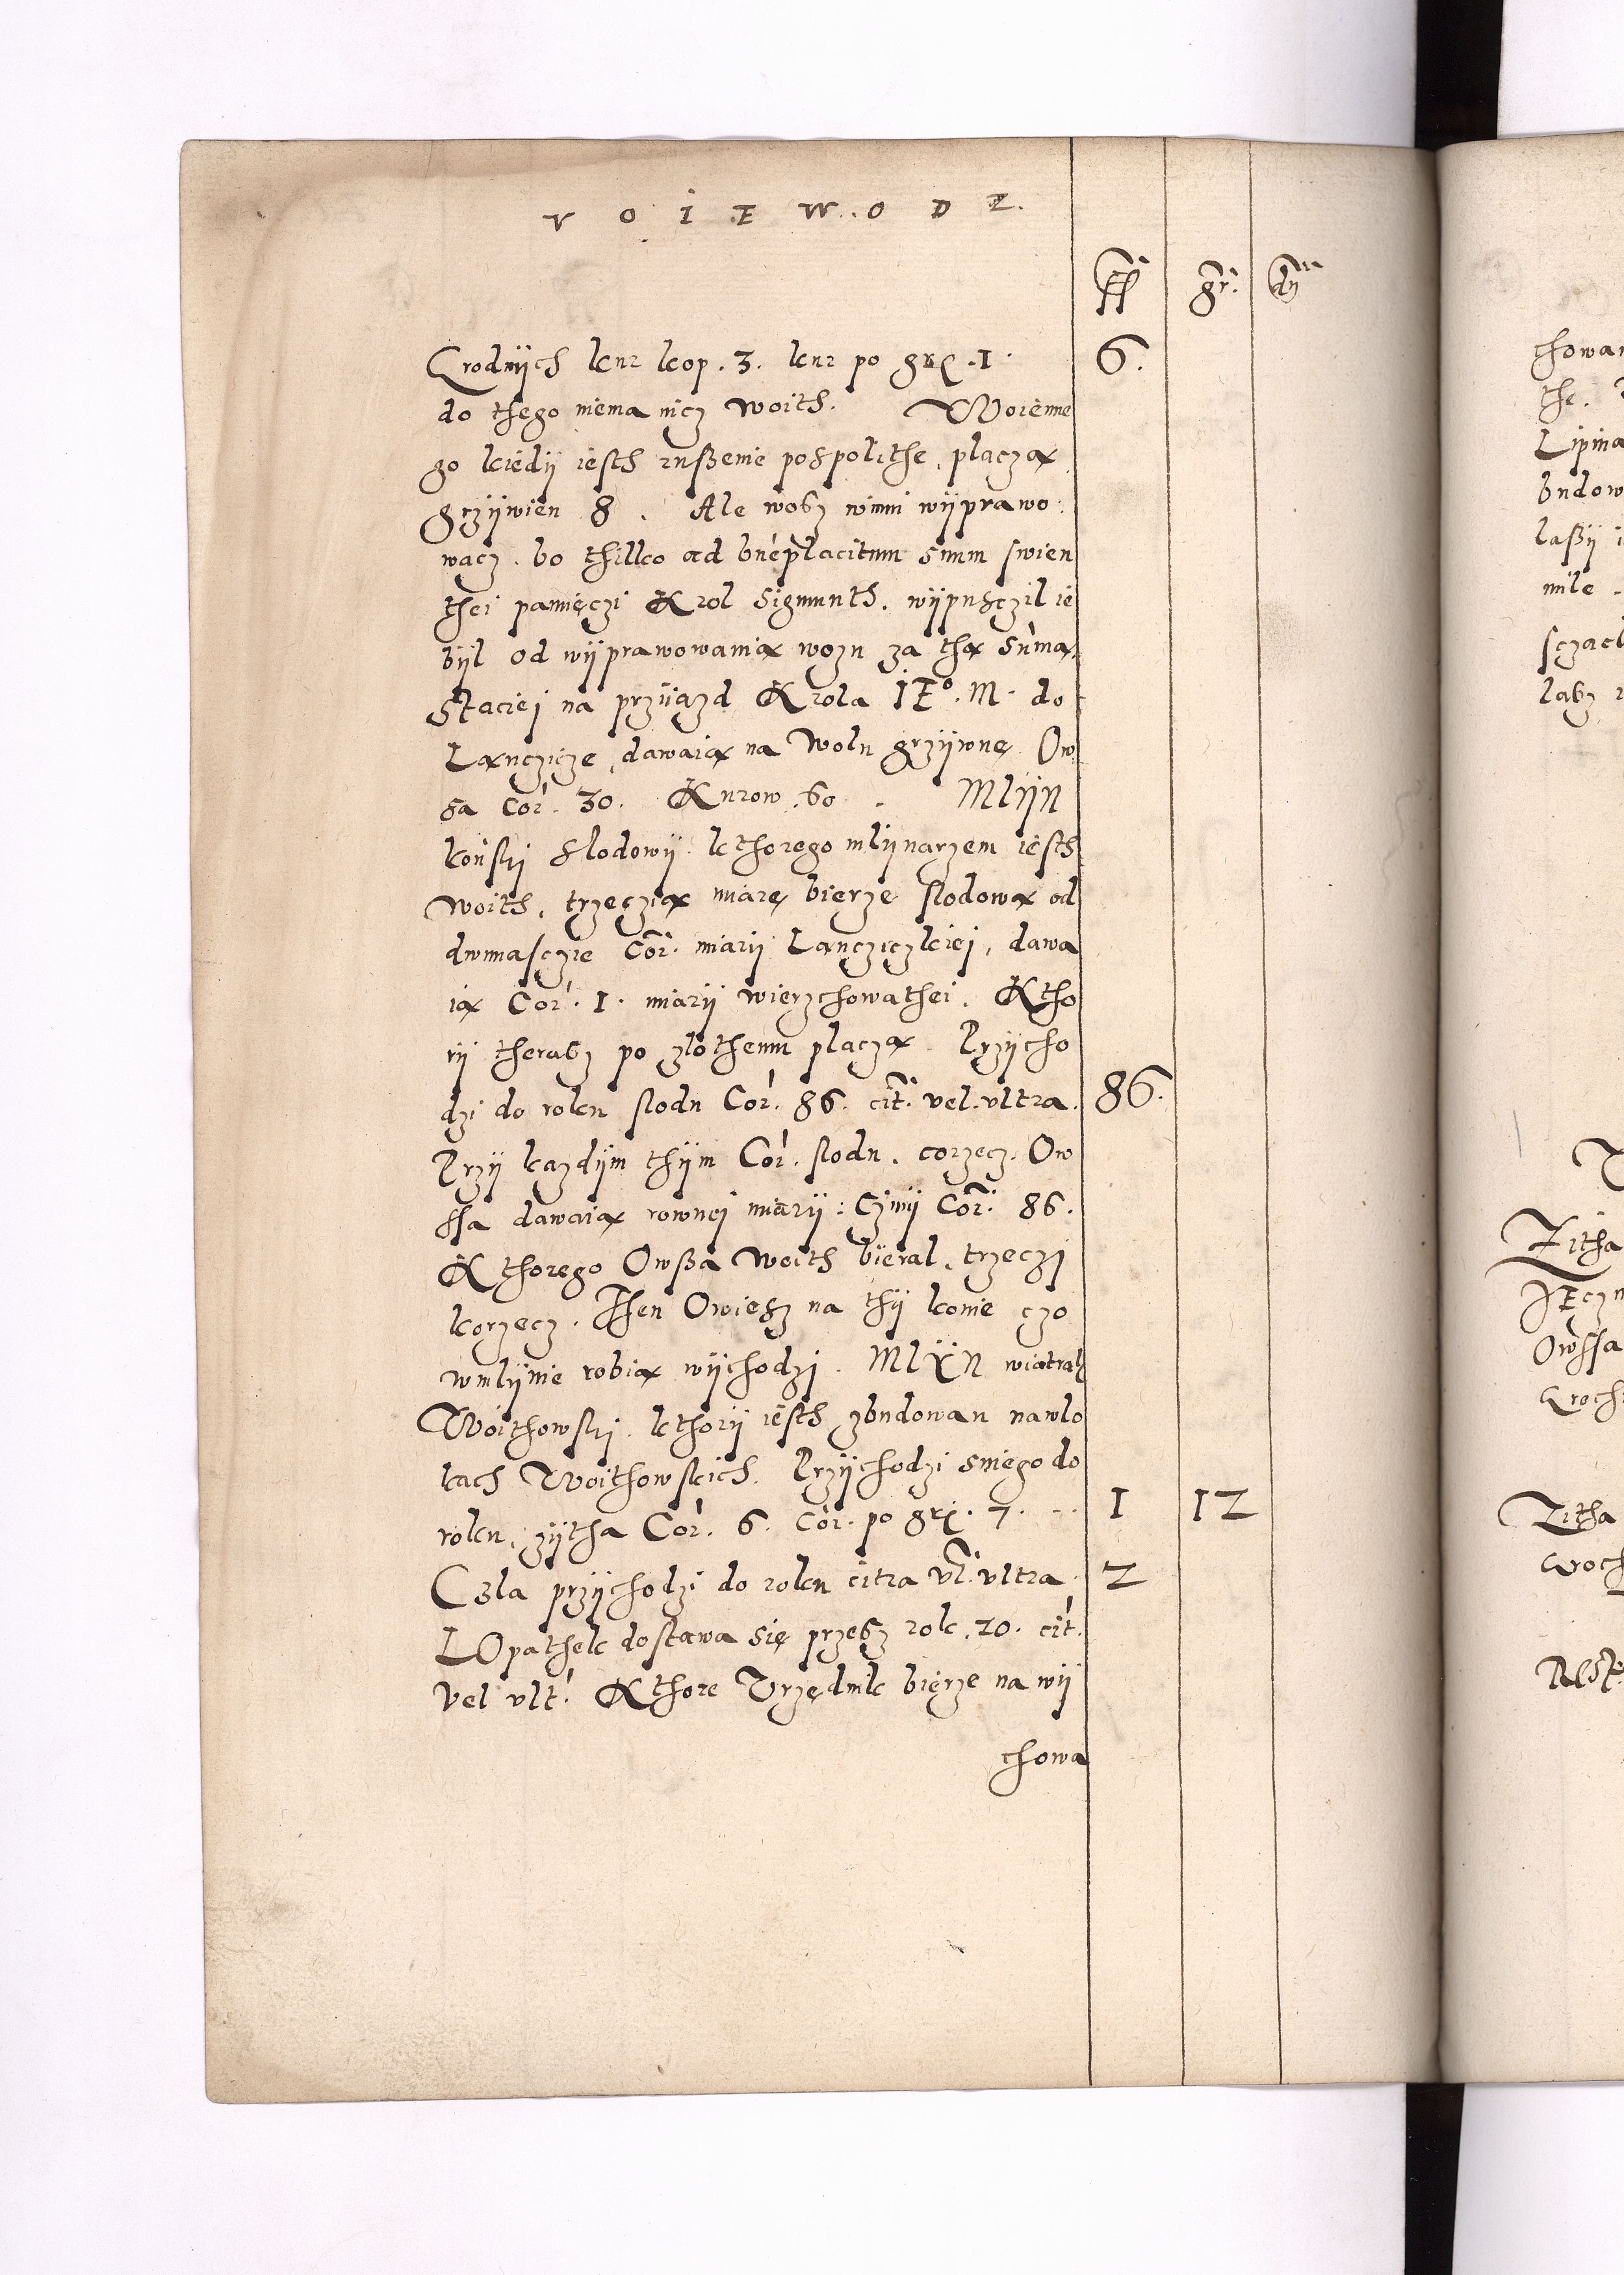 VOIEWODZ.
ff gr. dn
Grodnych kur kop. 3. kur po grx. 1. 6.
do thego niema nicz woith. Woienne
go kiedÿ iesth rußenie pospolithe, placzą
grzÿwien 8. Ale wosz winni wÿprawo
wacz. bo thilko ad bneplacitum suum swien
thei pamięczi Krol Sigmunth. wÿpusczil ie
bÿl od wÿprawowania wozu za thą summą.
Staciei na przÿiazd Krola IE°. M. do
Lanczicze, dawaią na Wolu grzÿwnę. Ow
sa Cor. 30. Kurow. 60. MlÿN
koński slodowÿ. kthorego mlÿnarzem iesth
woith. trzeczią miarę bierze slodową od
dwunasczie Cor. miarÿ Lanczÿczkiei, dawa
ią Cor. 1. miarÿ wierzchowathei. Ktho
rÿ therasz po zlothemu placzą. Przÿcho
dzi do roku slodu Cor. 86. cit. vel. vltra. 86.
Przÿ kazdÿm thÿm Cor. slodu. corzecz. Ow
ssa dawaią rownei miarÿ: Czÿni Cor. 86.
Kthorego Owßa woith bieral. trzeczi
korzecz. Then Owiesz na thÿ konie czo
wmlÿnie robią wÿchodzi. MlÿN wiatrak
Woithowski. kthorÿ iesth zbudowan nawlo
kach Woithowskich. Przÿchodzi sniego do
roku, zÿtha Cor. 6. Cor. po grx. 7. 1 12
Czla przÿchodzi do roku citra vl. vltra 2
LOpathek dostawa się przesz rok. 20. cit.
vel vlt. Kthore Vrzędnik bierze na wÿ
chowa